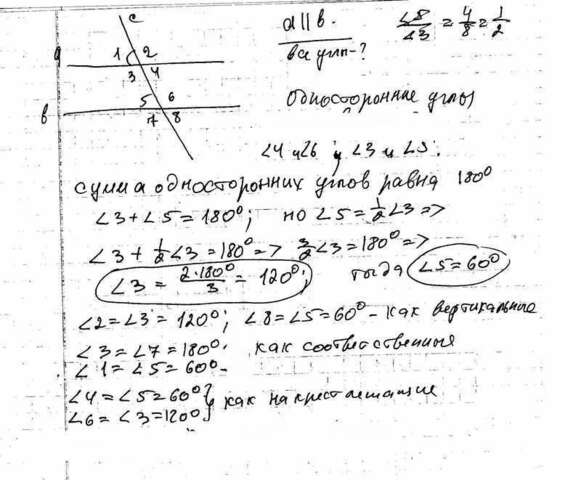 c
a
1 2
3 4
в
5 6
7 8
a || в.
все углы - ?
∠5/∠3 = 4/8 = 1/2
Односторонние углы
∠4 и ∠6 и ∠3 и ∠5.
сумма односторонних углов равна 180°
∠3 + ∠5 = 180°; но ∠5 = 1/2 ∠3 =>
∠3 + 1/2 ∠3 = 180° => 3/2 ∠3 = 180° =>
∠3 = 2·180°/3 = 120°; тогда ∠5 = 60°
∠2 = ∠3 = 120°; ∠8 = ∠5 = 60° - как вертикальные
∠3 = ∠7 = 180° как соответственные
∠1 = ∠5 = 60° -
∠4 = ∠5 = 60° } как накрестлежащие
∠6 = ∠3 = 120° }